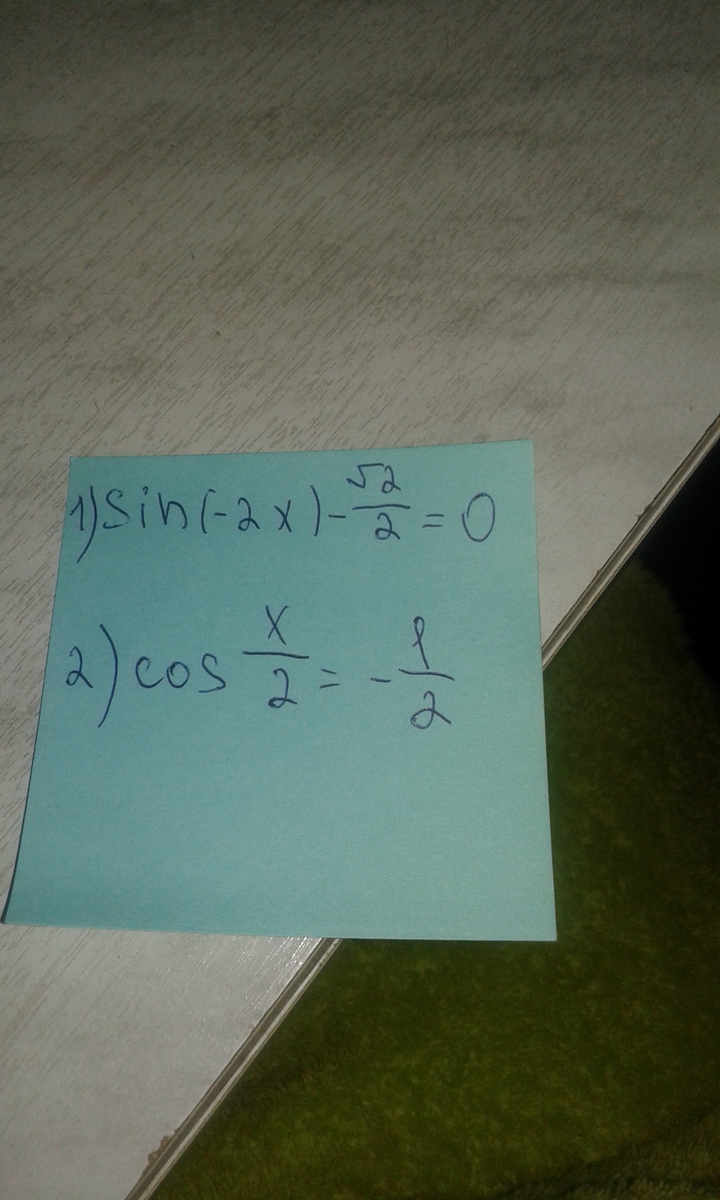 1) sin(-2x) - √2/2 = 0
2) cos x/2 = - 1/2